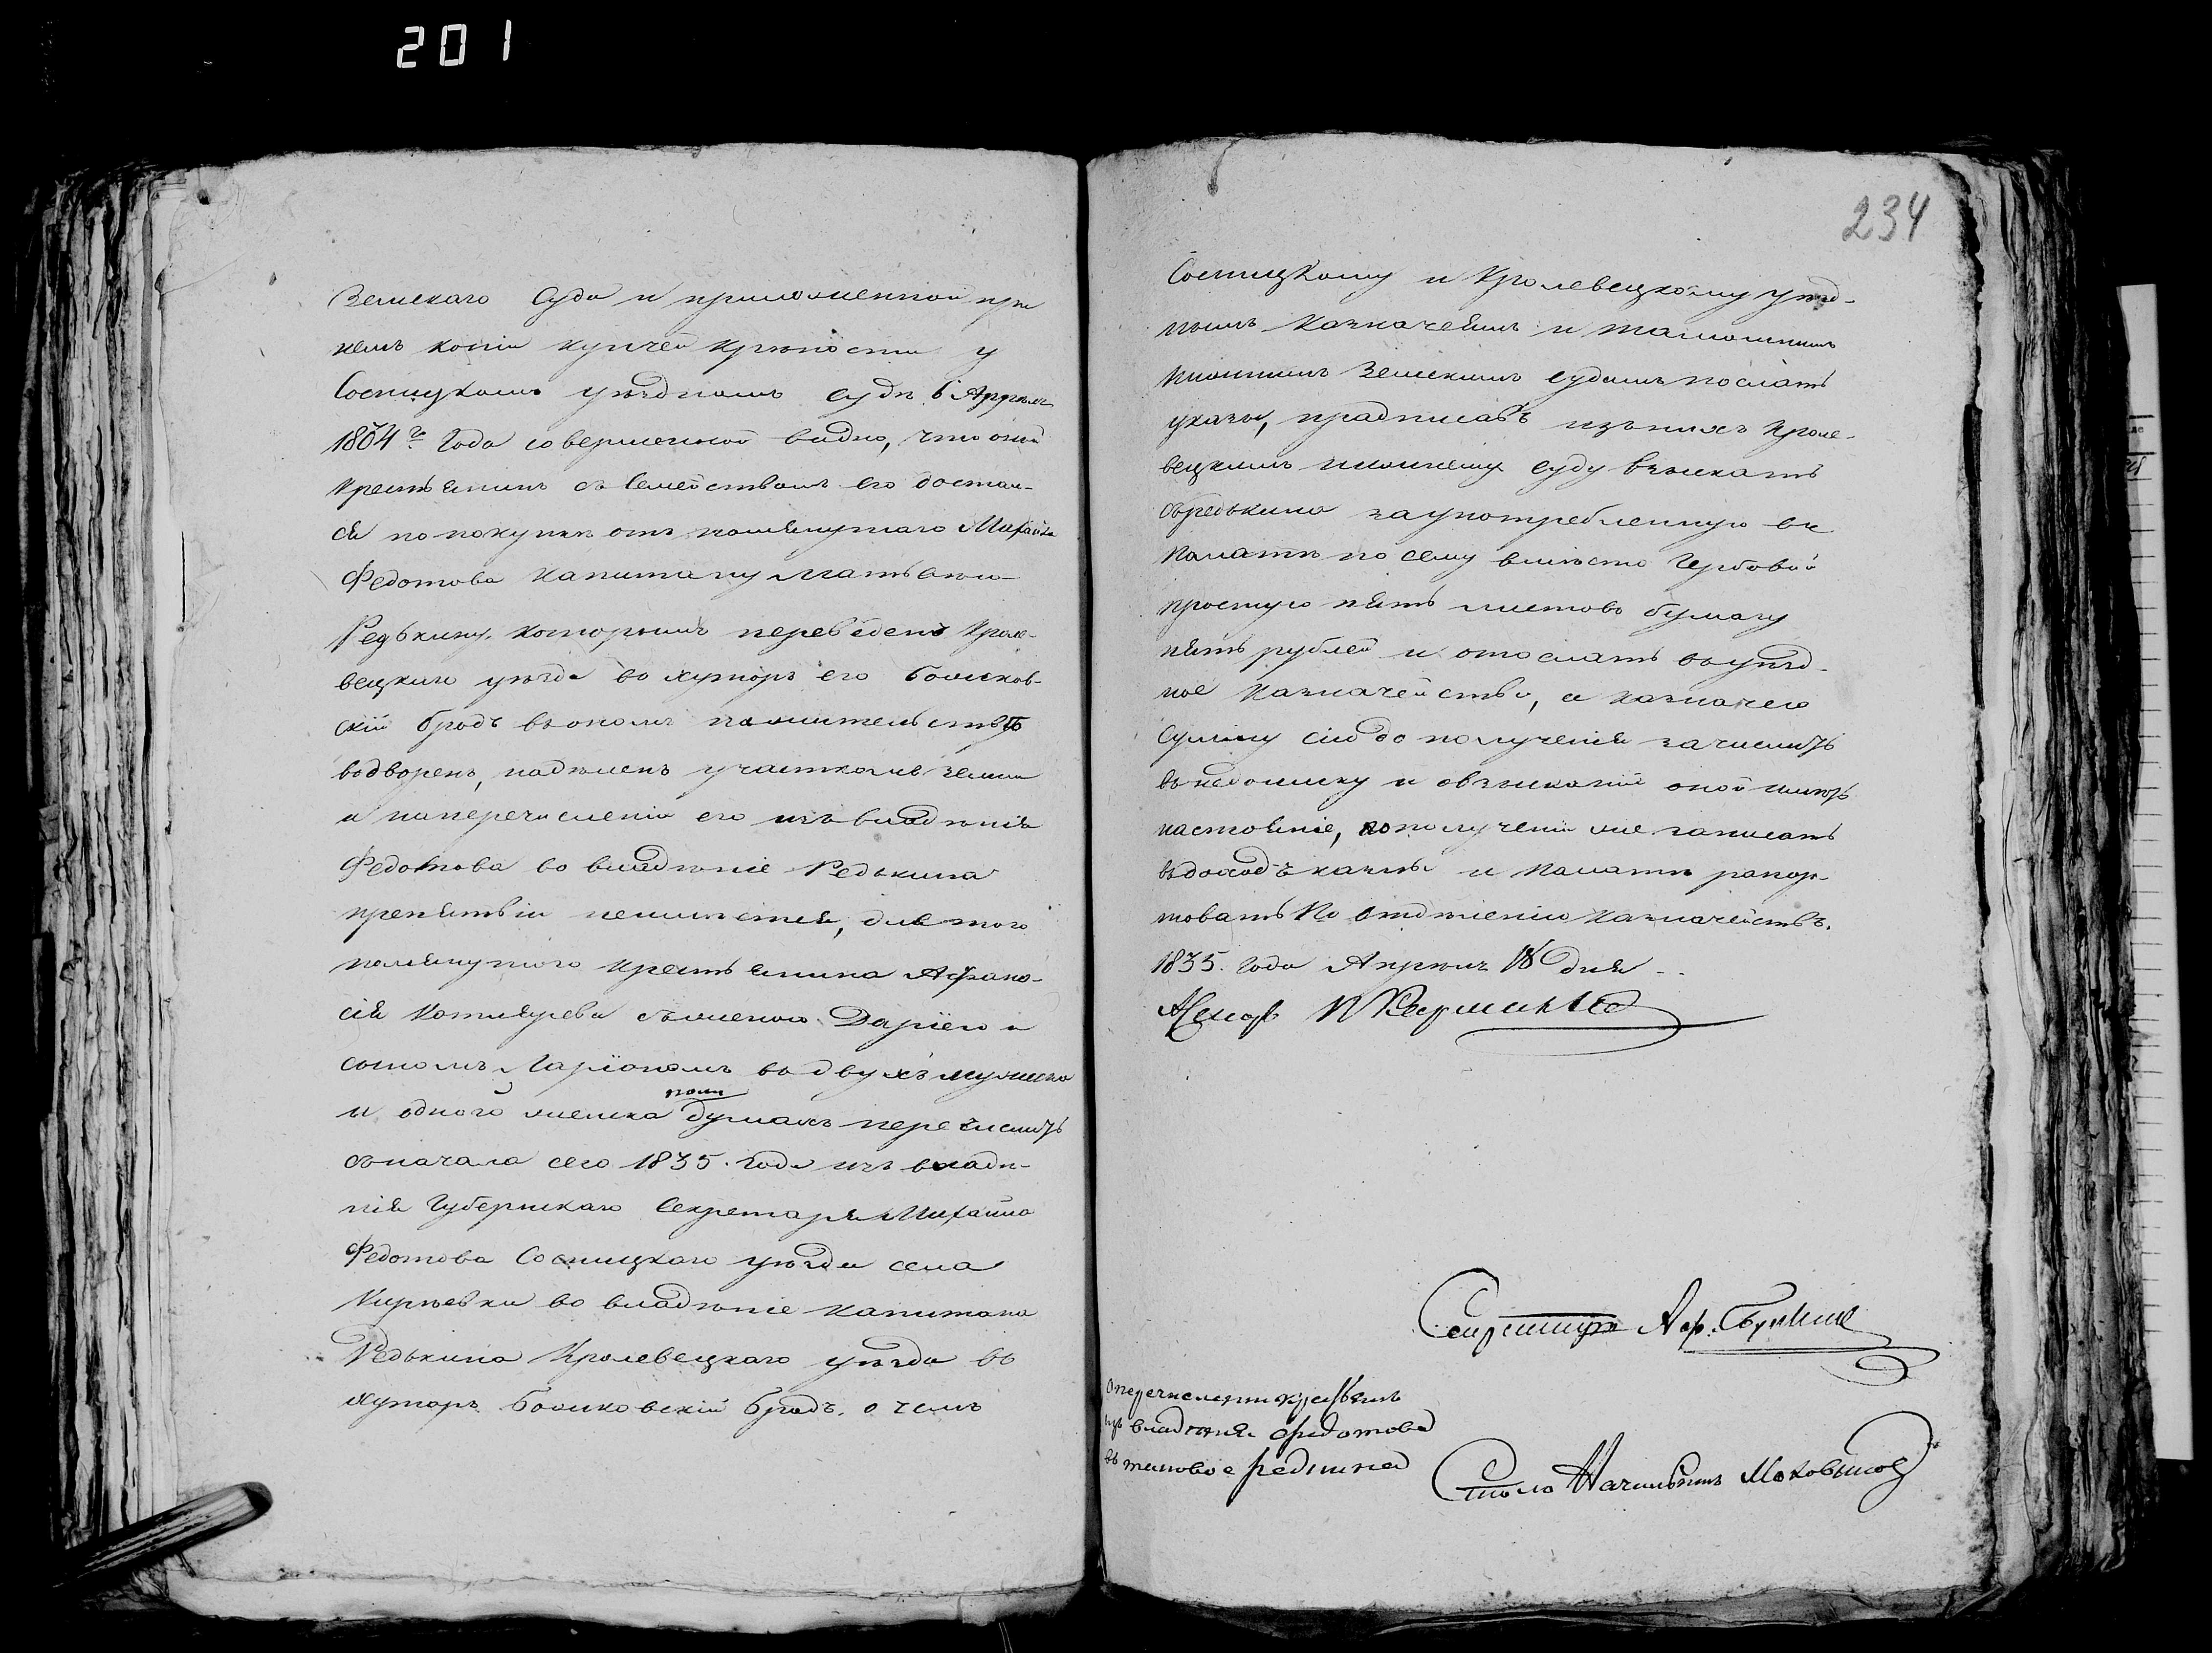 201
Земскаго Суда и приложенной при
немъ копіи купчей крѣпости у
Сосницкомъ уѣздномъ судѣ 6 Апрѣля
1804го Года совершенной видно, что оной
крестьянинъ съ Семействомъ его достал-
ся по покупкѣ отъ помянутаго Михайла
Федотова Капитану Матвѣю
Редькину, которымъ переведенъ Кроле-
вецкаго уѣзда во хуторъ его
скій бродъ въ ономъ жительствѣ
водворенъ, надѣленъ участкомъ земли
и на перечисленіи его изъ владѣнія
Федотова во владѣніе Редькина
препятствіи неимѣется, для того
помянутого крестьянина Афана-
сія Котлярева съ женою Даріею и
сыномъ Ларіономъ во двухъ мужеска
и одного женска пола душахъ перечислить
съ начала сего 1835. Года изъ владѣ-
нія Губернскаго Секретаря Михайла
Федотова Сосницкаго уѣзда села
Кирѣевки во владѣніе Капитана
Редькина Кролевецкаго уѣзда въ
хуторъ бродъ, о чемъ
234
Сосницкому и Кролевецкому уѣзд-
нымъ Казначеямъ и тамошнимъ
Земскимъ судамъ послать
указы, предписавъ изъ нихъ Кроле-
вецкимъ суду взыскать
съ Редькина за употребленную въ
Палатѣ по сему вмѣсто Гербовой
простую пять листовъ бумагу
пять рублей и отослать въ уѣзд-
ное Казначейство, а казначею
Сумму сію до полученія зачислить
въ недоимку и о взысканіи оной имѣть
настояніе, по полученіи же записать
въ доходъ казны и Палатѣ рапор-
товать По отдѣленію Казначействъ.
1835. Года Апрѣля 18 дня
Секретарь
О перечислении крестьянъ
изъ владѣния Федотова
въ таковое Редькина
Столо Начальникъ